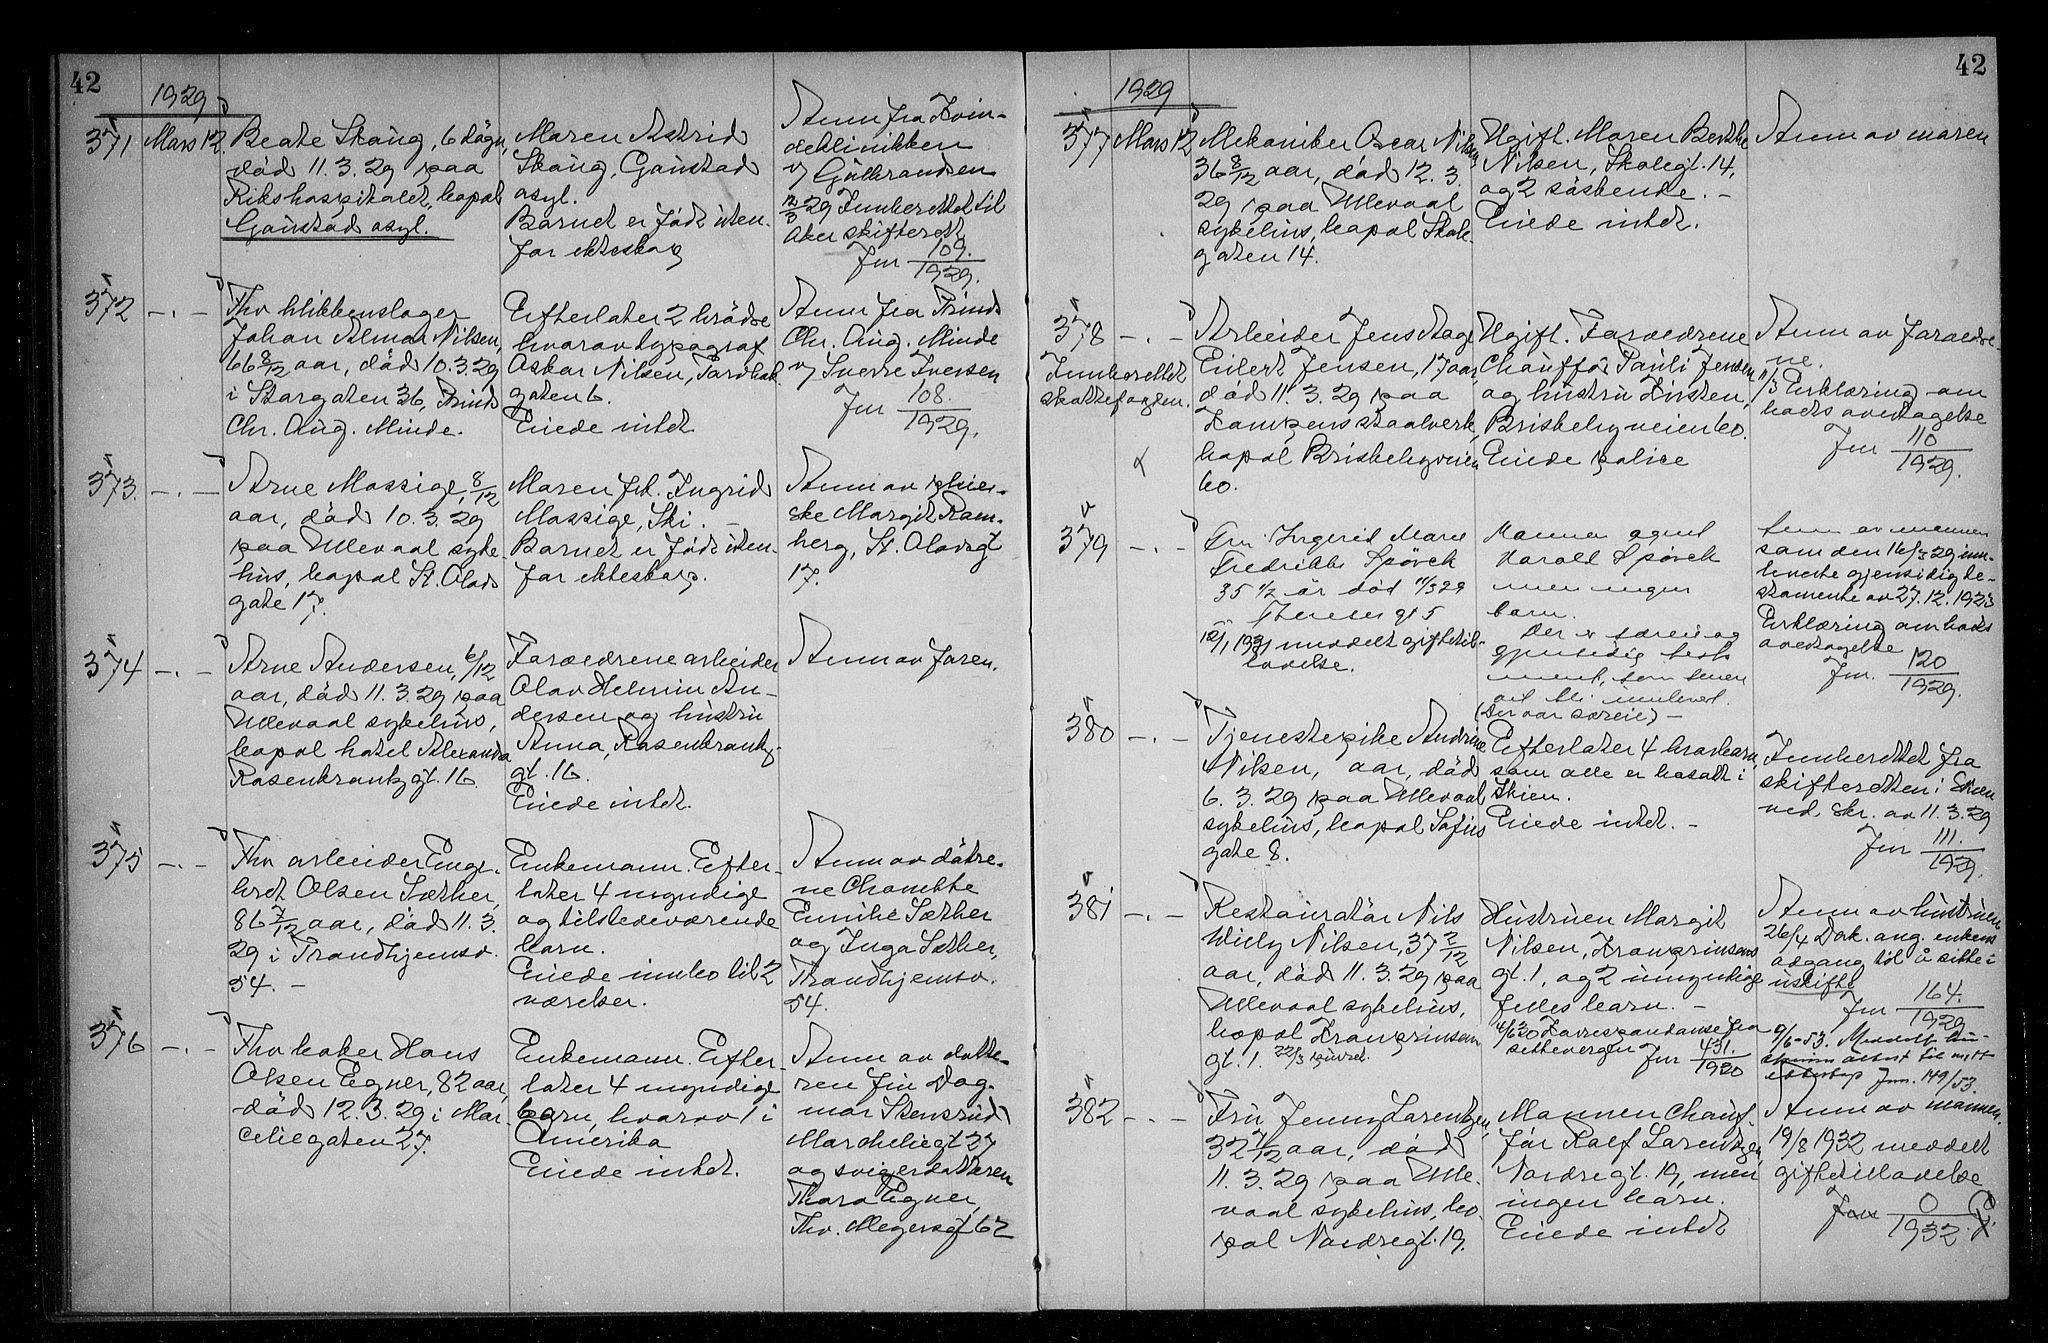 42
1929
371 Mars 12.
Beate Skaug, 6 døgn,
død 11.3.29 paa
Rikshospitalet, bopæl
Gaustad asyl.
Moren Astrid
Skaug, Gaustad
asyl.
Barnet er født uten-
for ekteskap
Anm fra Kvin-
deklinikken
v/ Gulbrandsen
12/3 29 Innberettet til
Aker skifterett
Jnr 109./1929.
372 -.-
Fhv blikkenslager
Johan Almar Nilsen,
66 8/12 aar, død 10.3.29
i Storgaten 36, Prinds
Chr. Aug. Minde.
Efterlater 2 brødre
hvorav typograf
Oskar Nilsen, Torvbak-
gaten 6.
Eiede intet.
Anm fra Prinds
Chr. Aug. Minde
v/ Sverre Iversen
Jnr 108./1929.
373. -.-
Arne Mossige, 8/12
aar, død 10.3.29
paa Ullevaal syke
hus, bopæl St. Olavs
gate 17.
Moren frk. Ingrid
Mossige, Ski. -
Barnet er født uten-
for ekteskap.
Anm av pleier-
ske Margit Ram-
berg, St. Olavsgt
17.
374 -.-
Arne Andersen, 6/12
aar, død 11.3.29 paa
Ullevaal sykehus,
bopæl hotel Alexandra
Rosenkrantzgt. 16.
Forældrene arbeider
Olav Helmin An-
dersen og hustru
Anna, Rosenkrantz-
gt. 16.
Eiede intet.
Anm av faren.
375 -.-
Fhv arbeider Enge-
bret Olsen Sæther,
86 7/12 aar, død 11.3.
29 i Trondhjemsv.
54. -
Enkemann. Efter-
later 4 myndige
og tilstedeværende
barn.
Eiede innbo til 2
værelser.
Anm av døtre-
ne Charlotte
Emilie Sæther
og Inga Sæther,
Trondhjemsv.
54.
376 -.-
Fhv baker Hans
Olsen Egner, 82 aar,
død 12.3.29 i Mar-
celiegaten 27.
Enkemann. Efter-
later 4 myndige
barn, hvorav 1 i
Amerika
Eiede intet.
Anm av datte-
ren fru Dag-
mar Stensrud
Marcheliegt 27
og svigerdatteren
Thora Egner,
Thv. Meyersgt 62
42
1929
377 Mars 12
Mekaniker Oscar Nilsen
36 8/12 aar, død 12.3.
29 paa Ullevaal
sykehus, bopæl Skole-
gaten 14.
Ugift. Moren Berthe
Nilsen, Skolegt. 14,
og 2 søskende. -
Eiede intet.
Anm av moren
378 -.-
Innberettet
skattefogden.
Arbeider Jens Aage
Eilert Jensen, 17 aar,
død 11.3.29 paa
Kampens staalverk,
bopæl Briskebyveien
60.
Ugift. Forældrene
Chauffør Pauli Jensen
og hustru Kirsten,
Briskebyveien 60.
Eiede police
Anm av forældre-
ne.
11/3 Erklæring om
bods overtagelse
Jnr 110/1929.
379 -.-
Fru Ingerid Marie
Fredrikke Spørck
35 1/2 år død 11/3 29
Theresesgt 5
12/1 1931 meddelt giftetil-
lovelse.
Mannen agent
Harald Spørck
men ingen
barn.
Der er særeie og
gjensidig testa
ment, som senere
vil bli innlevert.
(Der var særeie) -
Anm av mannen
som den 16/3 29 inn-
leverte gjensidig te-
stamente av 27.12.1923
Erklæring om bods
overtagelse
Jnr. 120/1929.
380 -.-
Tjenestepike Andrine
Nilsen, aar, død
6.3.29 paa Ullevaal
sykehus, bopæl Sofies
gate 8.
Efterlater 4 brorbarn,
som alle er bosatt i
Skien.
Eiede intet. -
Innberettet fra
skifteretten i Skien
ved skr. av 11.3.29
Jnr 111./1929.
381 -.-
Restauratør Nils
Willy Nilsen, 37 2/12
aar, død 11.3.29 paa
Ullevaal sykehus,
bopæl Kronprinsens
gt. 1.
Hustruen Margit
Nilsen, Kronprinsens
gt. 1, og 2 umyndige
felles barn. -
4/6 30 Korrespondanse fra
settevergen Jnr 431./1930
Anm av hustruen
26/4 Dok. ang. enkens
adgang til å sitte i
uskifte
Jnr 164./1929
9/6-53. Meddelt
attest til nytt
ekteskap Jnr. 149/53.
382 -.-
Fru Jenny Lorentzen,
32 7/12 aar, død
11.3.29 paa Ulle-
vaal sykehus, bo-
pæl Nordregt. 19.
Mannen chauf-
før Rolf Lorentzen,
Nordregt. 19, men
ingen barn.
Eiede intet
Anm av mannen.
19/8 1932 meddelt
giftetillovelse
Jnr 0/1932.